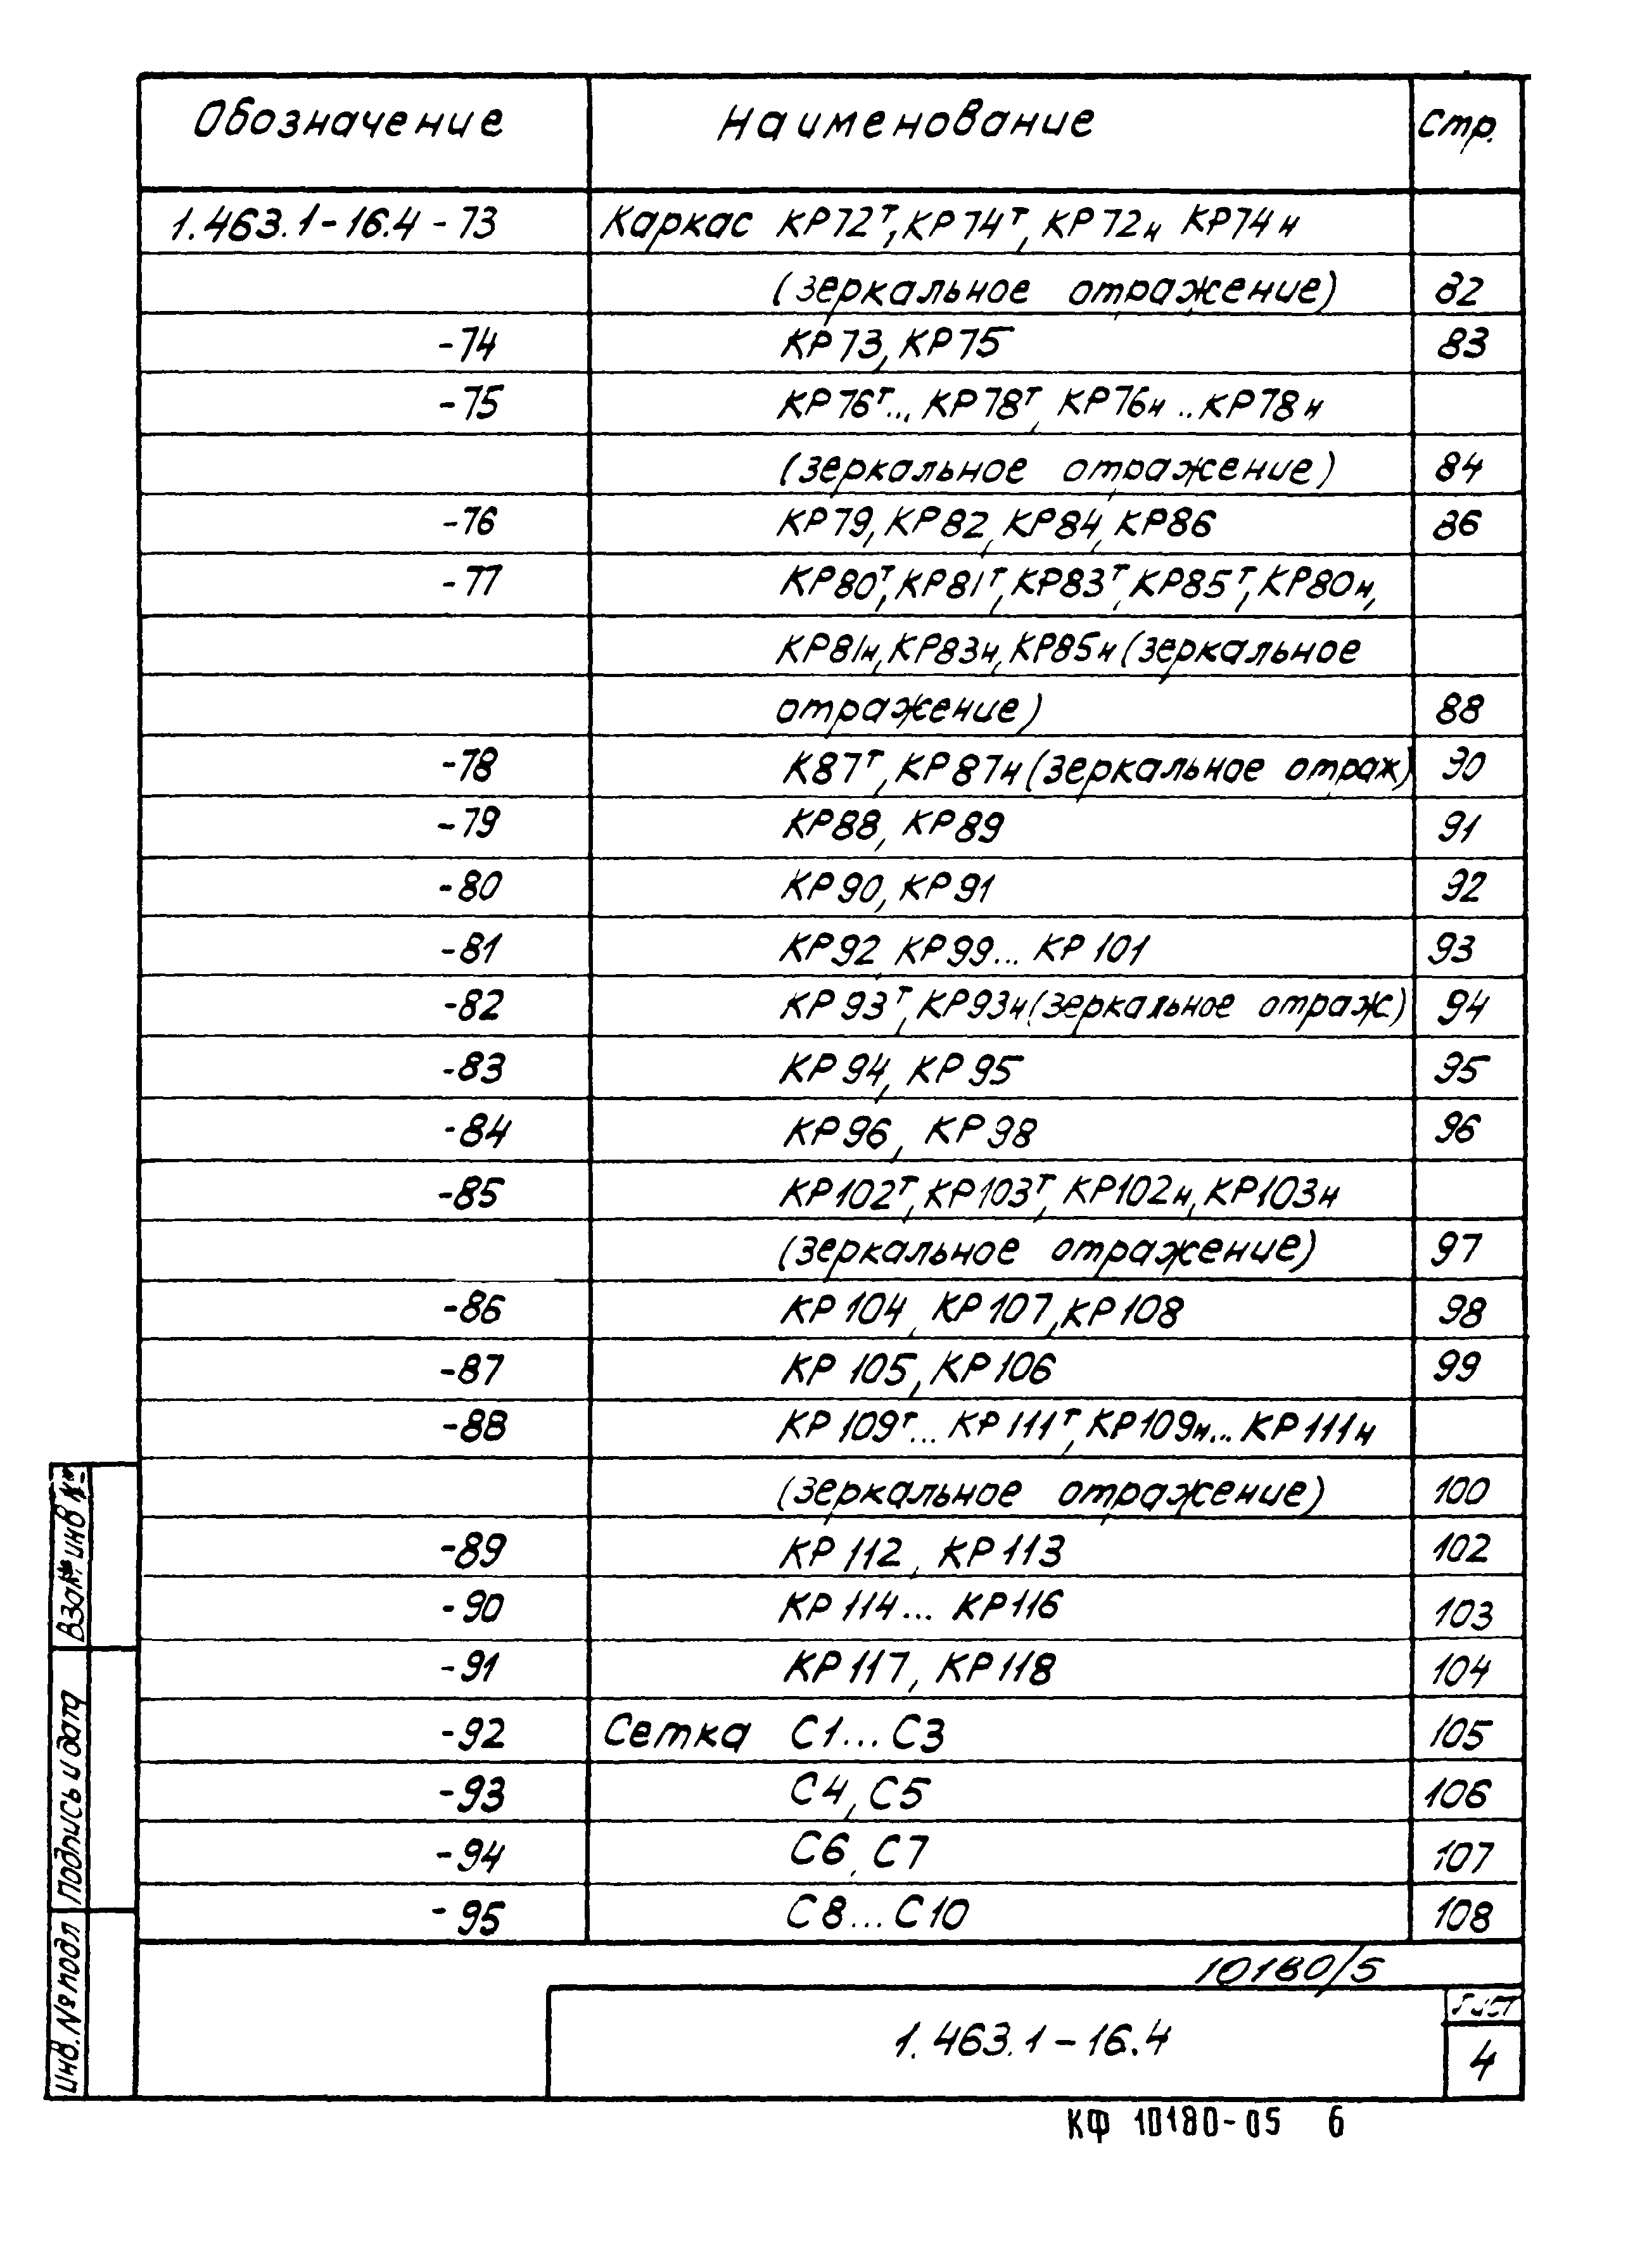 Обозначение Наименование Стр.
1.463.1-16.4-73 Каркас КР72т, КР74т, КР72н КР74н
(зеркальное отражение) 82
-74 КР73, КР75 83
-75 КР76т..., КР78т, КР76н ..КР78н
(зеркальное отражение) 84
-76 КР79, КР82, КР84, КР86 86
-77 КР80т, КР81т, КР83т, КР85т, КР80н,
КР81н, КР83н, КР85н (зеркальное
отражение) 88
-78 К87т, КР87н (зеркальное отраж) 90
-79 КР88, КР89 91
-80 КР90, КР91 92
-81 КР92 КР99... КР101 93
-82 КР93т, КР93н (зеркальное отраж) 94
-83 КР94, КР95 95
-84 КР96, КР98 96
-85 КР102т, КР103т, КР102н, КР103н
(зеркальное отражение) 97
-86 КР104, КР107, КР108 98
-87 КР105, КР106 99
-88 КР109т... КР111т, КР109н... КР111н
(зеркальное отражение) 100
-89 КР112, КР113 102
-90 КР114... КР116 103
-91 КР117, КР118 104
-92 Сетка С1...С3 105
-93 С4, С5 106
-94 С6, С7 107
-95 С8...С10 108
10180/5
1.463.1-16.4
Лист
4
Взам. инв №
Подпись и дата
инв. № подл
КФ 10180-05 6